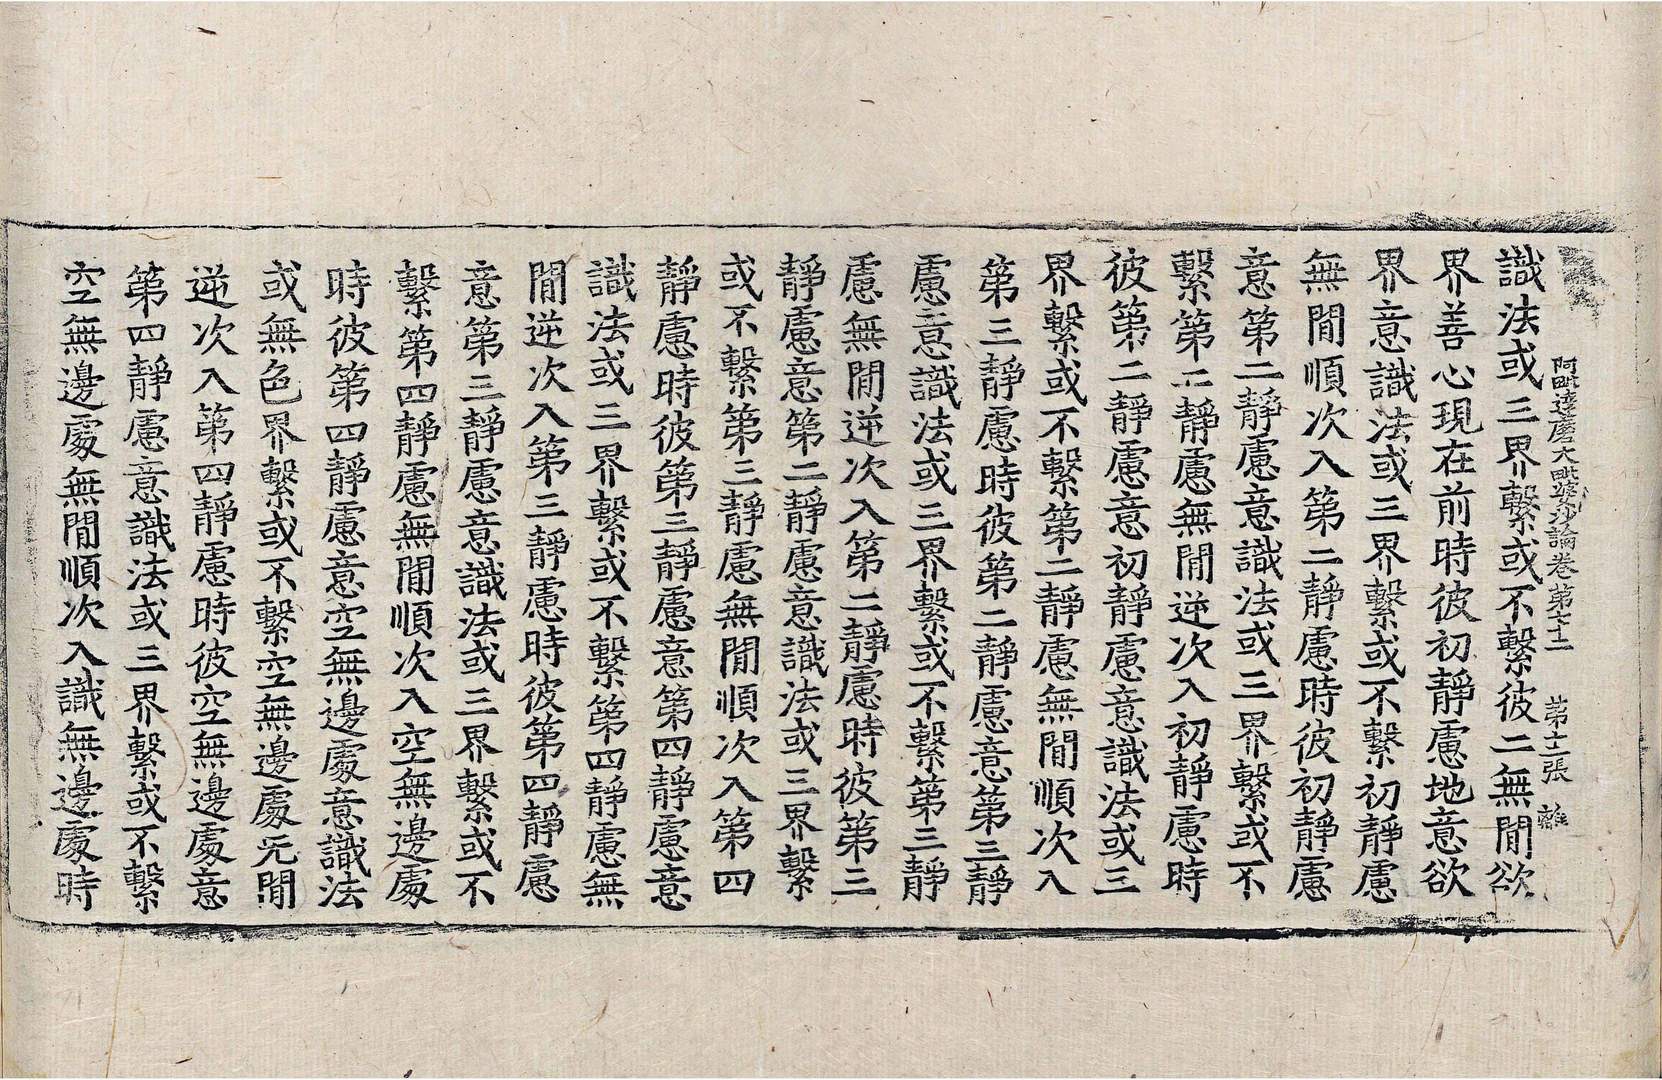 阿毗達磨大毗婆沙論卷第七十二 第十二張 離
識法或三界繫或不繫彼二無間欲
界善心現在前時彼初靜慮地意欲
界意識法或三界繫或不繫初靜慮
無間順次入第二靜慮時彼初靜慮
意第二靜慮意識法或三界繫或不
繫第二靜慮無間逆次入初靜慮時
彼第二靜慮意初靜慮意識法或三
界繫或不繫第二靜慮無間順次入
第三靜慮時彼第二靜慮意第三靜
慮意識法或三界繫或不繫第三靜
慮無間逆次入第二靜慮時彼第三
靜慮意第二靜慮意識法或三界繫
或不繫第三靜慮無間順次入第四
靜慮時彼第三靜慮意第四靜慮意
識法或三界繫或不繫第四靜慮無
間逆次入第三靜慮時彼第四靜慮
意第三靜慮意識法或三界繫或不
繫第四靜慮無間順次入空無邊處
時彼第四靜慮意空無邊處意識法
或無色界繫或不繫空無邊處无間
逆次入第四靜慮時彼空無邊處意
第四靜慮意識法或三界繫或不繫
空無邊處無間順次入識無邊處時